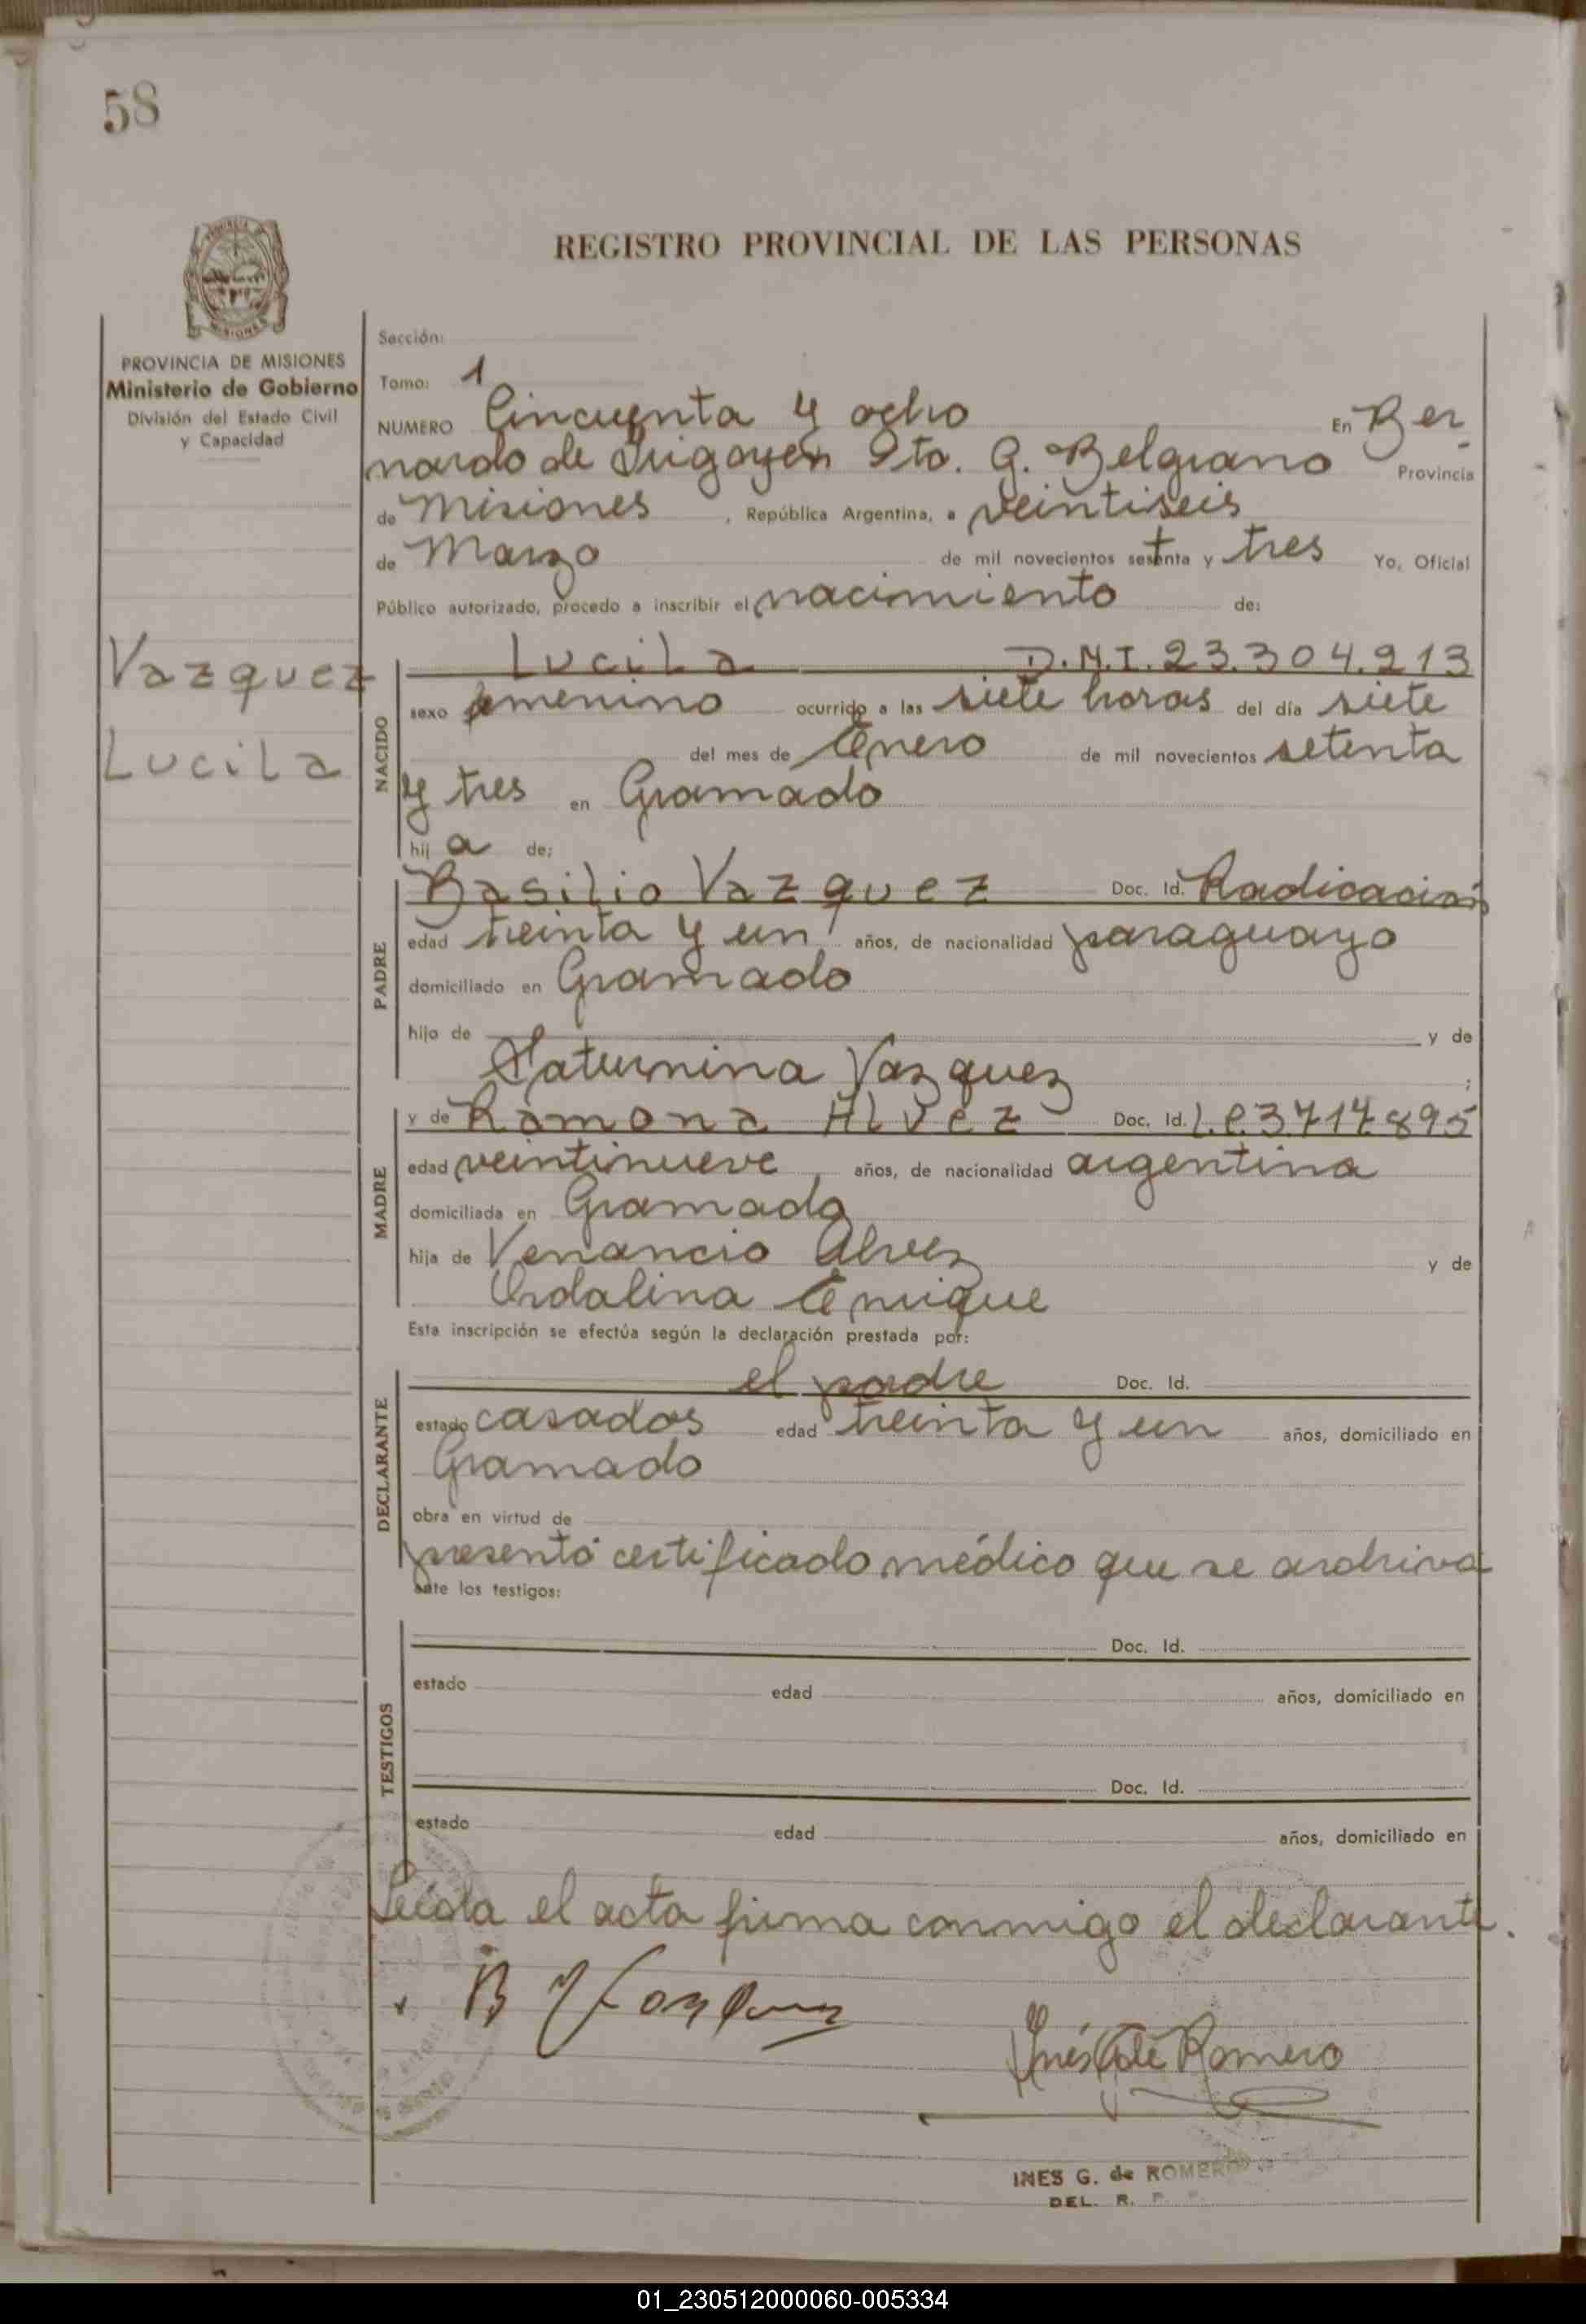 58
REGISTRO PROVINCIAL DE LAS PERSONAS
PROVINCIA DE MISIONES
Ministerio de Gobierno
División del Estado Civil
y Capacidad
Sección:
Tomo: 1
NUMERO Cincuenta y ocho En Ber-
nardo de Irigoyen Dto. G. Belgrano Provincia
de Misiones, República Argentina, a veintiseis
de Marzo de mil novecientos setenta y tres Yo, Oficial
Público autorizado, procedo a inscribir el nacimiento de:
Vazquez
Lucila
NACIDO
Lucila D.N.I. 23.304.213
sexo femenino ocurrido a las siete horas del día siete
del mes de Enero de mil novecientos setenta
y tres en Gramado
hij a de;
PADRE
Basilio Vazquez Doc. Id. Radicación
edad treinta y un años, de nacionalidad paraguayo
domiciliado en Gramado
hijo de y de
Saturnina Vazquez ;
MADRE
y de Ramona Alvez Doc. Id. L.C 3.717.895
edad veintinueve años, de nacionalidad argentina
domiciliada en Gramado
hija de Venancio Alvez y de
Ordalina Enrique
Esta inscripción se efectúa según la declaración prestada por:
DECLARANTE
el padre Doc. Id.
estado casados edad treinta y un años, domiciliado en
Gramado
obra en virtud de
presentó certificado médico que se archiva
ante los testigos:
TESTIGOS
Doc. Id.
estado edad años, domiciliado en
Doc. Id.
estado edad años, domiciliado en
Leída el acta firma conmigo el declarante.
Inés G de Romero
INES G. de ROMERO
DEL. R. P. P.
01_230512000060-005334